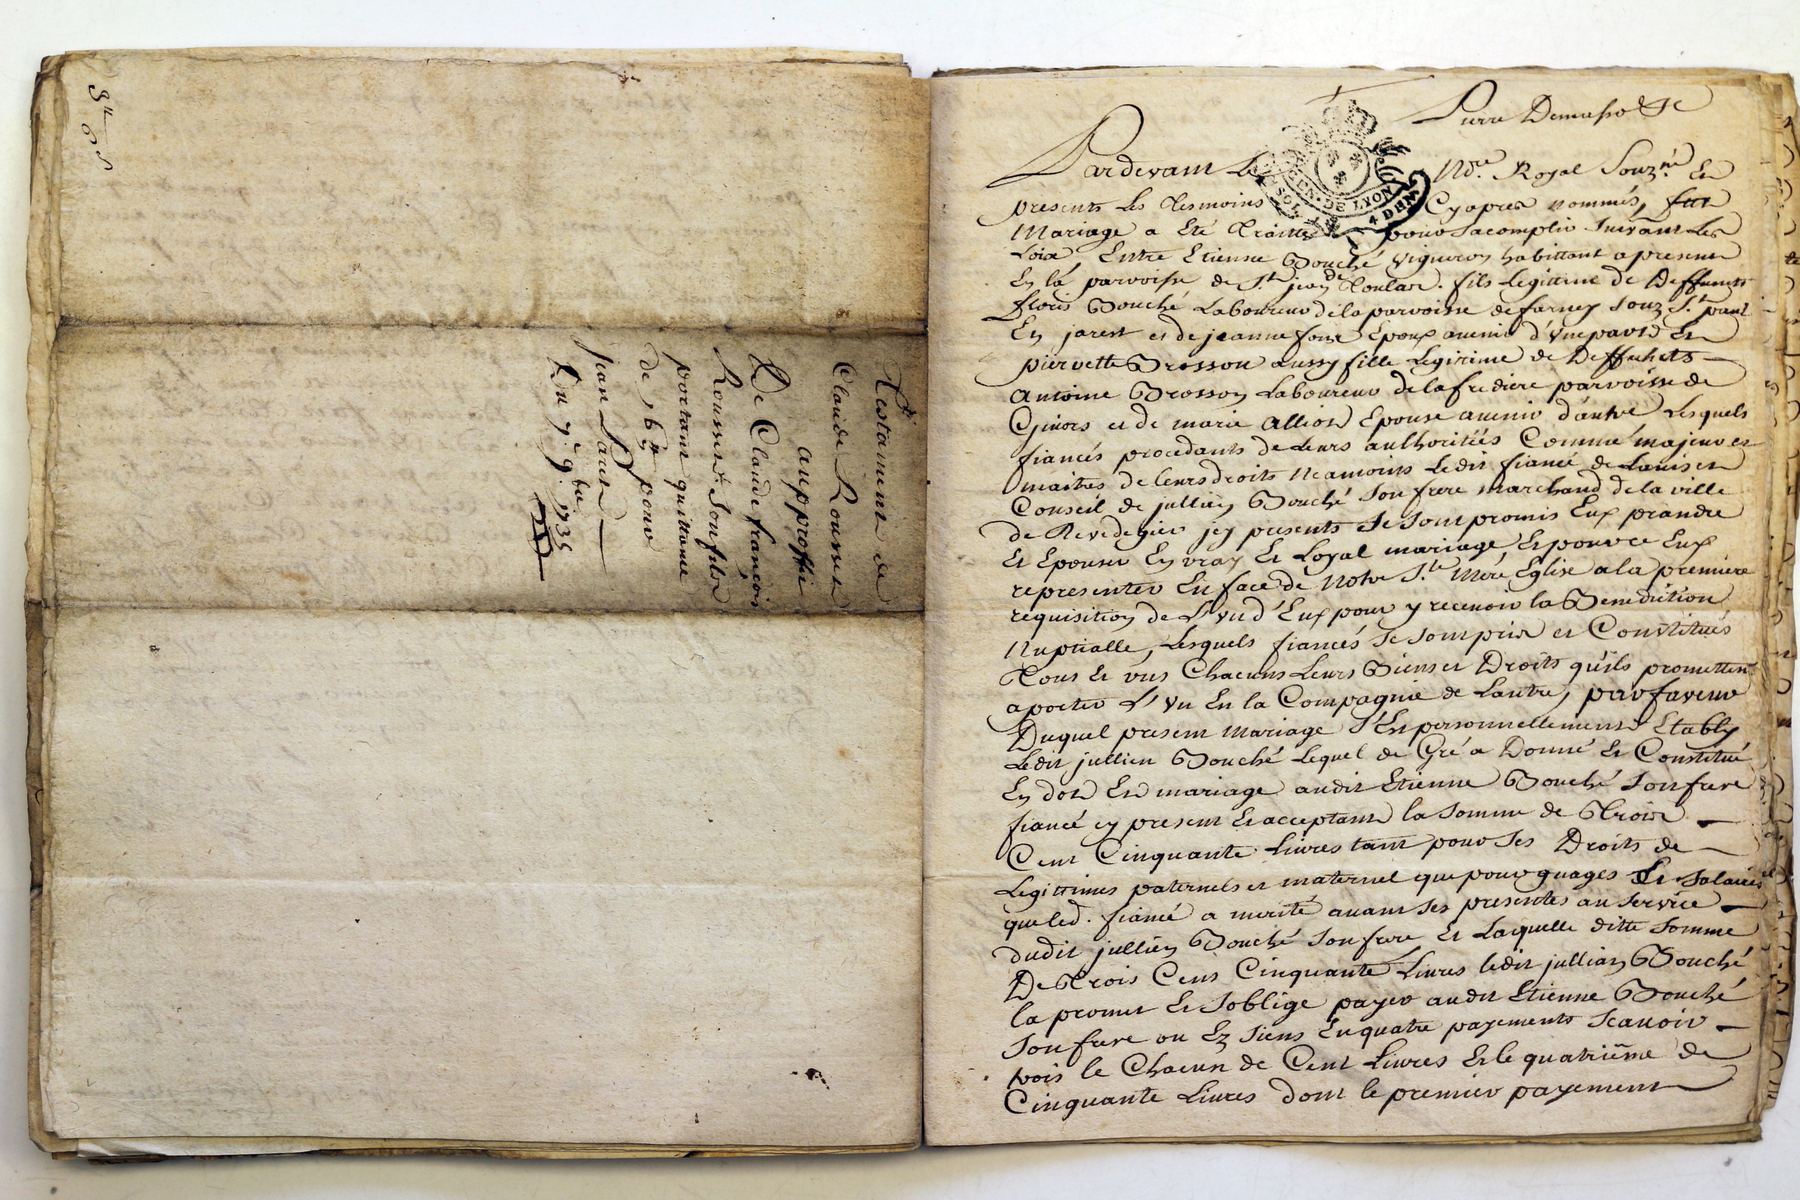 Testam.t de
Claude Rousset
au proffit
De Claude françois
Rousset Son fils
portant quittance
de 16 ₶ pour
jean
Du 7.e 9.bre 1735
Pierre
Pardevant Le N.re Royal Souz.né Et
presents Les Tesmoins Cyapres nommés, fut
Mariage a Eté Traitté pour Sacomplir Suivant Les
Loix Entre Etienne Bouché Vigneron habittant a present
En la parroisse de S.t jean de Toulas. fils Legittime de Deffunts
fleris Bouché Laboureur de la parroisse de farney Souz S.t paul
En jarest et de jeanne font Epoux avenir d'Une part Et
pierrette Brosson aussy fille Legitime de Deffunts
Antoine Brosson Laboureur de la frediere parroisse de
Givors et de marie Allion Epouse avenir d'autre Lesquels
fiancés procedants de Leurs authorittés Comme majeurs et
maitres de leurs droits Neamoins Ledit fiancé de Lavis et
Conseil de jullien Bouché Son frere marchand de la ville
de Rivedegier jcy presents Se Sont promis Eux prandre
Et Epouser En vray Et Loyal mariage, Et pour ce Eux
representer En face de Notre S.te Mere Eglise a la premiere
requisition de L'Un d'Eux pour y recevoir la Benediction
Nuptialle, Lesquels fiancés Se Sont pris et Constitués
Tous Et uns Chacuns Leurs Biens et Droits qu'ils promettent
aporter L'Un En la Compagnie de Lautre, par faveur
Duquel present Mariage S'Est personnellement Etably
Ledit jullien Bouché Lequel de Gré a Donné Et Constitué
En dot En mariage audit Etienne Bouché Son frere
fiancé cy present Et acceptant la Somme de Trois
Cent Cinquante Livres tant pour Ses Droits de
Legittimes paternels et maternel que pour guages Et Salaires
que led. fiancé a merité avant Ses presentes au Service
dudit jullien Bouché Son frere Et Laquelle ditte Somme
De Trois Cent Cinquante Livres ledit jullien Bouché
la promet Et Soblige payer audit Etienne Bouché
Son frere ou Ez Siens En quatre payements Scavoir
trois le Chacun de Cent Livres Et le quatrième de
Cinquante Livres dont le premier payement
GEN. DE LYON
4 DEN.